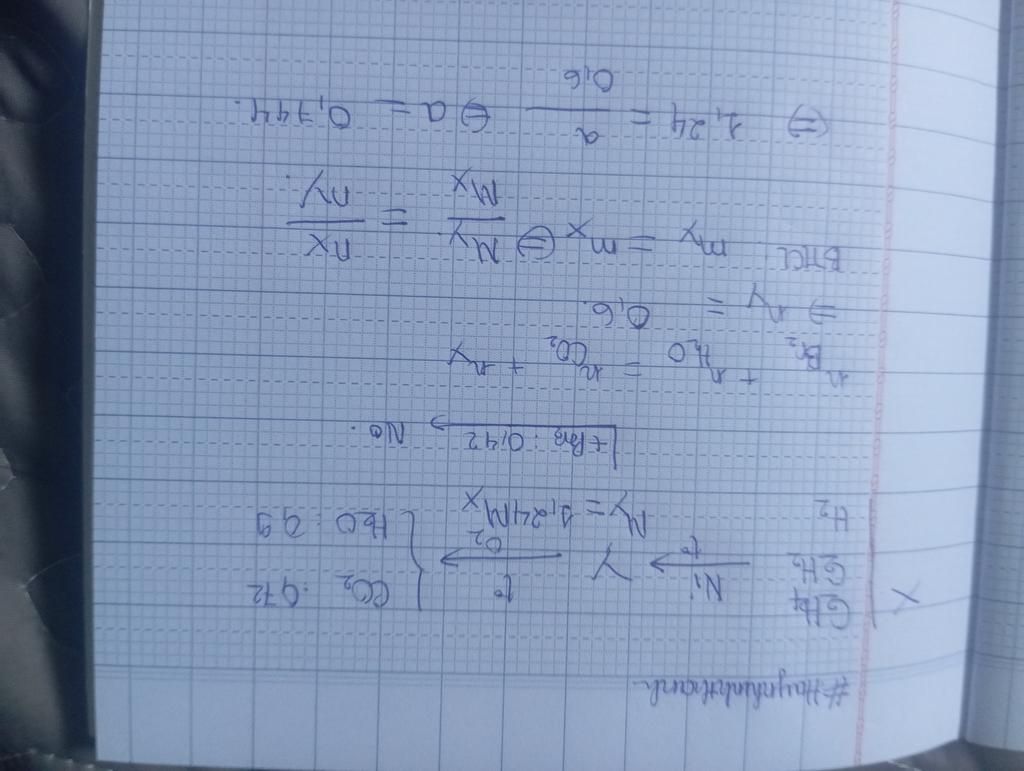 #Huynhminhthanh
X { C₂H₄ C₂H₂ H₂ —Ni, t°→ Y —t°, O₂→ { CO₂ : 0,72 H₂O : 0,9
My = 1,24Mx
+ Br₂ : 0,42 → No.
nBr₂ + nH₂O = nCO₂ + ny
⇒ ny = 0,6.
BTKL: my = mx ⇔ My/Mx = nx/ny.
⇔ 1,24 = a/0,6 ⇔ a = 0,744.